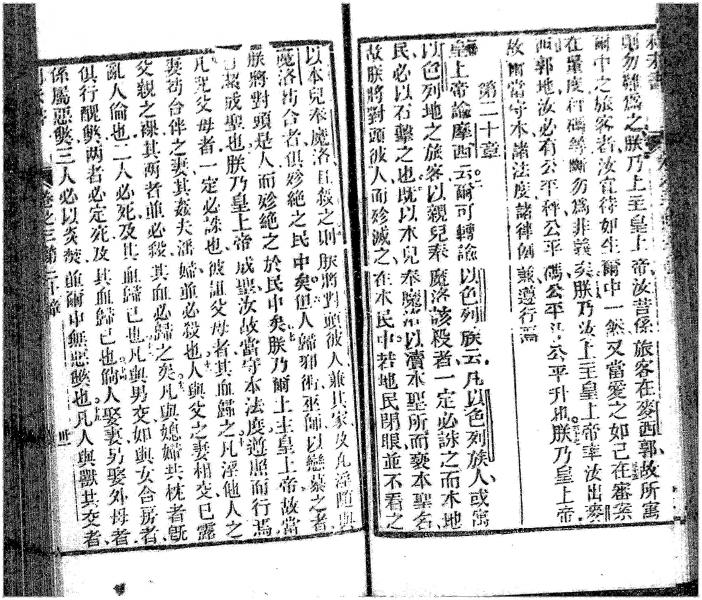 則勿難爲之、朕乃上主皇上帝、汝昔係旅客在麥西郭、故所寓
爾中之旅客者、汝宜待如生爾中一然、又當愛之如己、在審案
在量度秤碼等斷勿爲非義矣、朕乃汝上主皇上帝率汝出麥
西郭地、汝必有公平秤公平碼公平斗公平升也、朕乃皇上帝
故爾當守本諸法度諸律例兼遵行焉
第二十章
皇上帝諭摩西云爾可轉諭以色列族云、凡以色列族人或寓
以色列地之旅客以親兒奉魔洛該殺者一定必誅之而本地
民必以石擊之也既以本兒奉魔洛以瀆本聖所而褻本聖名
故朕將對頭彼人而殄滅之在本民中若地民閉眼並不看之
以本兒奉魔洛且殺之則朕將對頭彼人兼其家及凡淫隨與
魔洛苟合者俱殄絶之民中矣、但人歸邪術巫師以戀慕之者
朕將對頭是人而殄絶之於民中矣、朕乃爾上主皇上帝故當
自潔成聖也、朕乃皇上帝成聖汝故當守本法度遵照而行焉
凡咒父母者一定必誅也、彼詛父母者其血歸之、凡淫他人之
妻苟台伴之妻其姦夫潘婦並必殺也、人與父之妻相交已露
父親之裸其兩者並必殺其血必歸之矣、凡與媳婦共枕者旣
亂人倫也、二人必死及其血歸己也、凡與男交如與女合房者
俱行醜獘、兩者必定死及其血歸己也、倘人娶妻另娶外母者
係屬惡獘、三人必以炎焚並爾中無惡獘也、凡人與獸共交者